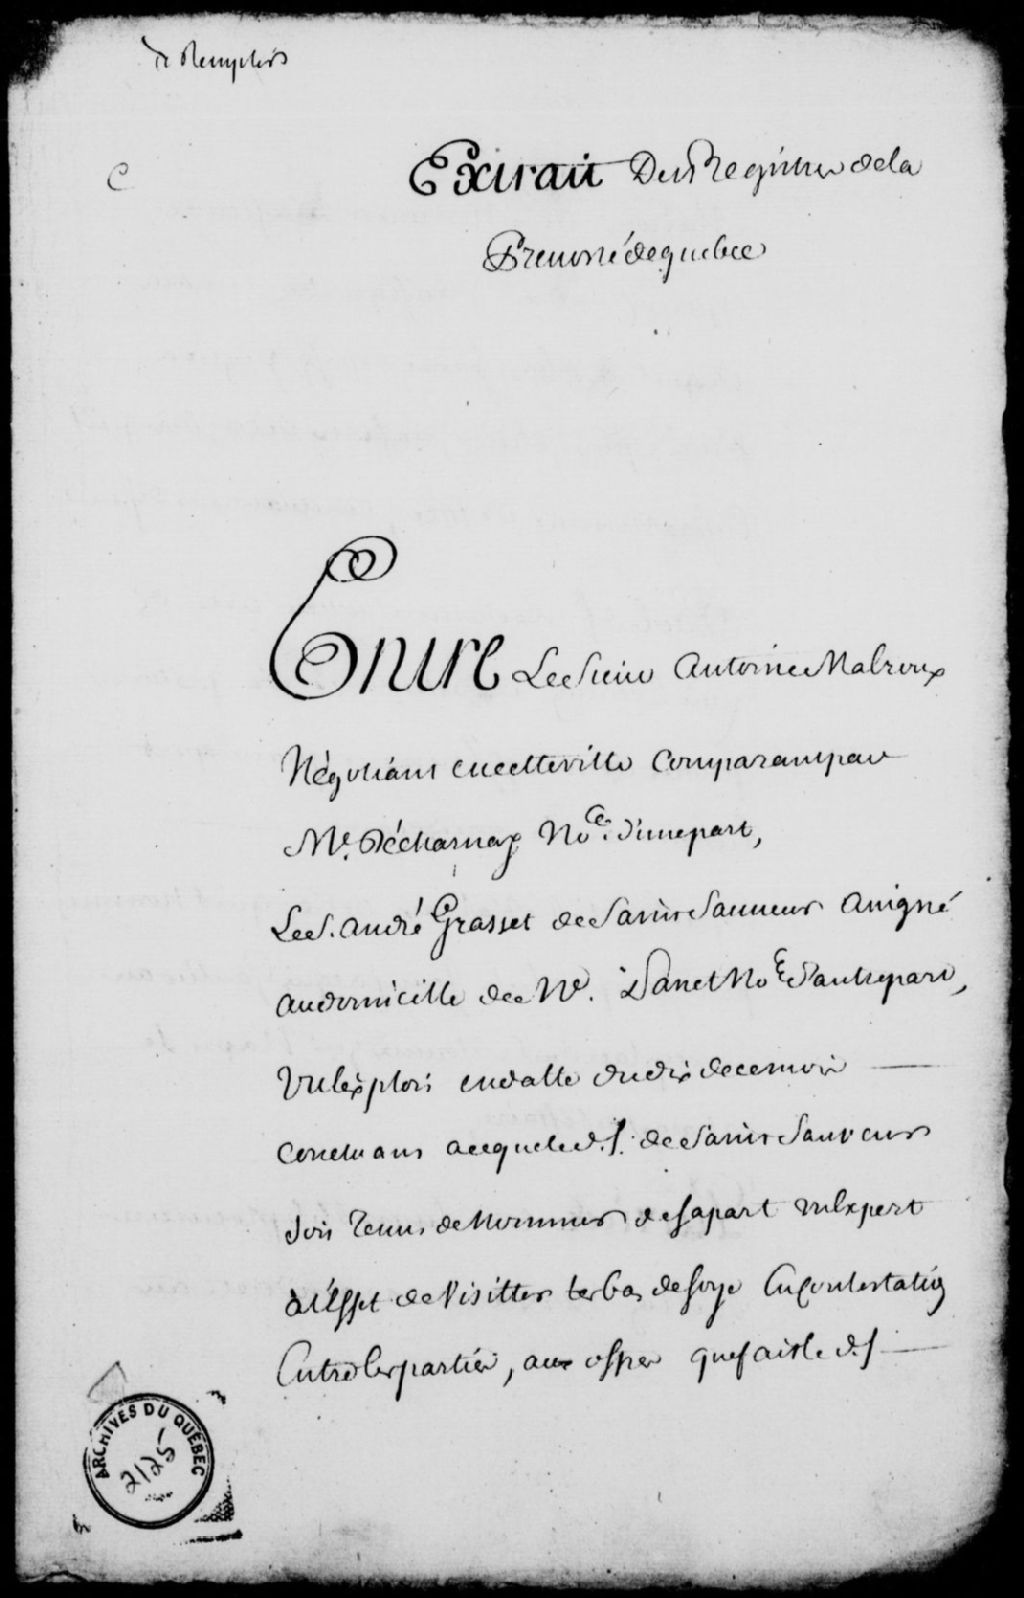 Extrait Des Registres dela
Prevosté de quebec
Entre Le Sieur Antoine Malroux
Négotiant en cette ville Comparant par
Me. Décharnay Nore. d'une part,
Le S. André Grasset de Saint Sauveur assigné
au domicille de Me. Panet Nore d'autre part,
Vu l'exploit en datte du dix decembre
Concluant a ce que le d. S. de Saint Sauveur
soit tenu de Nommer de sa part un Expert
à l'Effet de Visitter les bas de soye En Contestation
Entre les parties, aux offres que fait le d. S
ARCHIVES DU QUÉBEC
2125